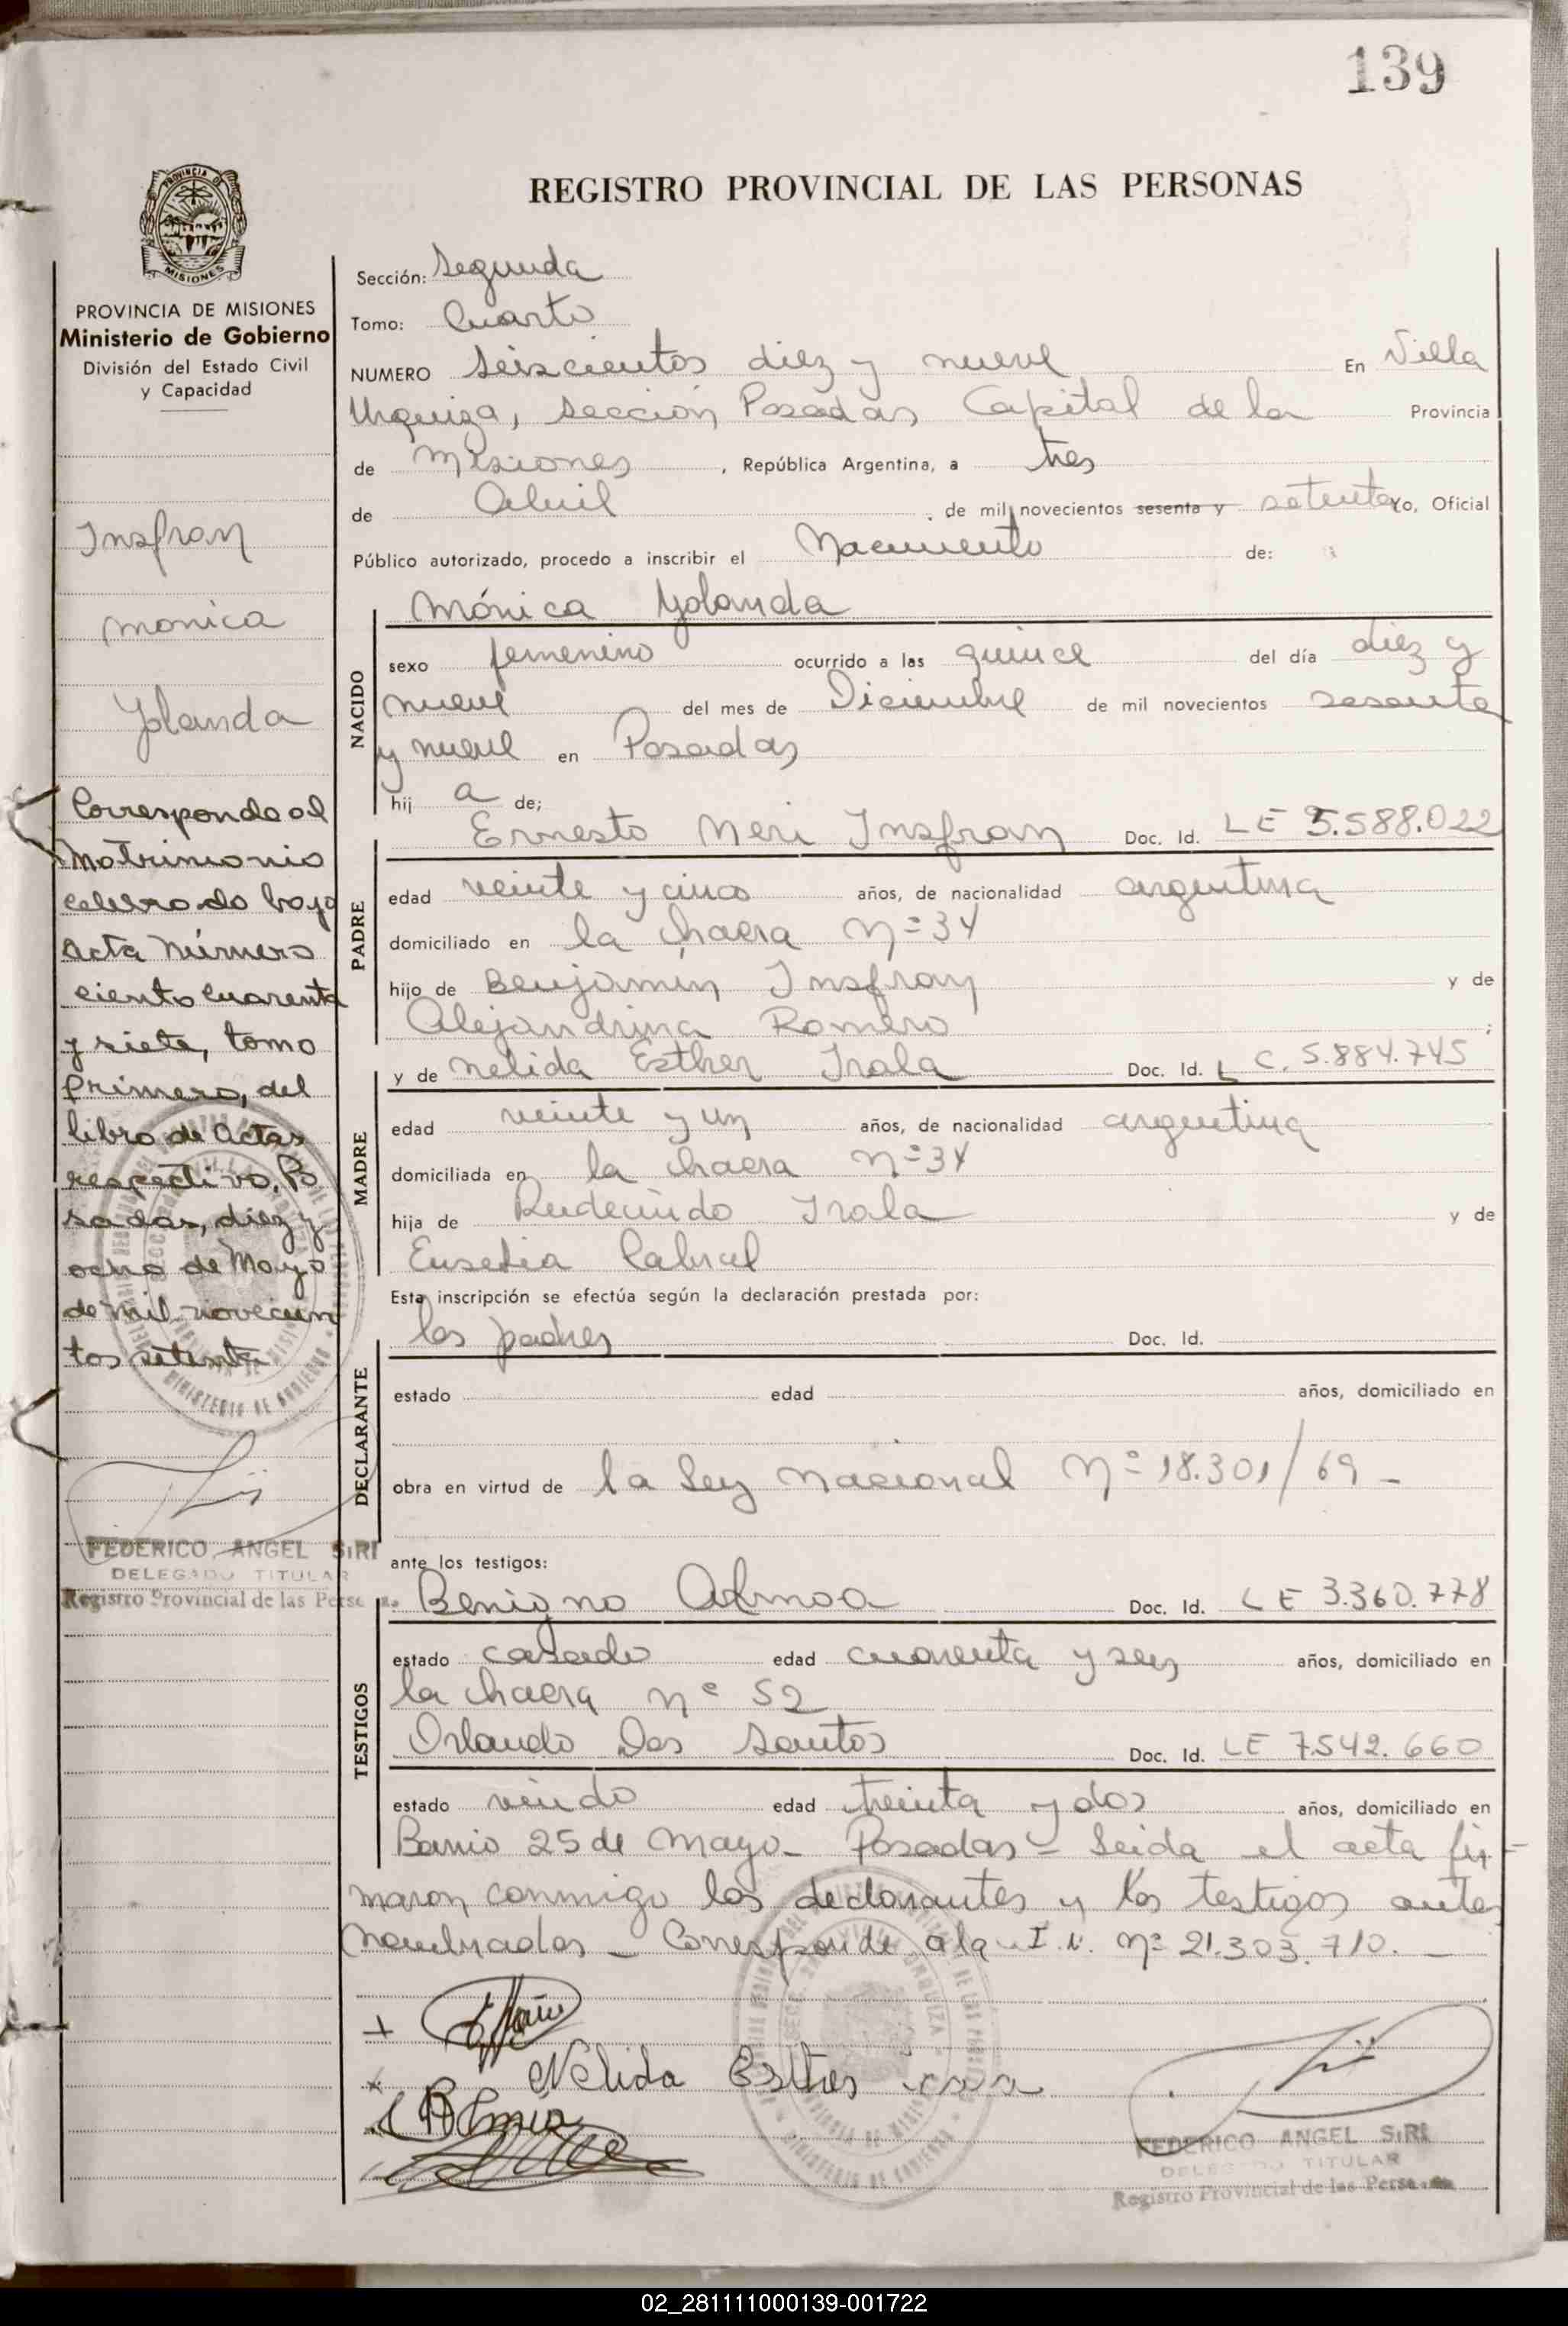 139
REGISTRO PROVINCIAL DE LAS PERSONAS
PROVINCIA DE MISIONES
MISIONES
PROVINCIA DE MISIONES
Ministerio de Gobierno
División del Estado Civil
y Capacidad
Insfran
Monica
Yolanda
Corresponde al
Matrimonio
celebrado bajo
acta número
ciento cuarenta
y siete, tomo
primero, del
libro de Actas
respectivo. Po
sadas, diez y
ocho de Mayo
de mil novecien
tos setenta
FEDERICO ANGEL SIRI
DELEGADO TITULAR
Registro Provincial de las Personas
Sección: Segunda
Tomo: Cuarto
NUMERO Seiscientos diez y nueve En Villa
Urquiza, sección Posadas Capital de la Provincia
de Misiones, República Argentina, a tres
de Abril de mil novecientos sesenta y setenta Yo, Oficial
Público autorizado, procedo a inscribir el Nacimiento de:
Mónica Yolanda
NACIDO
sexo femenino ocurrido a las quince del día diez y
nueve del mes de Diciembre de mil novecientos sesenta
y nueve en Posadas
hij a de;
Ernesto Neri Insfran Doc. Id. LE 5.588.022
PADRE
edad veinte y cinco años, de nacionalidad argentina
domiciliado en la chacra Nº 34
hijo de Benjamín Insfran y de
Alejandrina Romero ;
y de Nelida Esther Irala Doc. Id. L C. 5.884.745
MADRE
edad veinte y un años, de nacionalidad argentina
domiciliada en la chacra Nº 34
hija de Rudecindo Irala y de
Eusebia Cabral
Esta inscripción se efectúa según la declaración prestada por:
los padres Doc. Id.
DECLARANTE
estado edad años, domiciliado en
obra en virtud de la Ley Nacional Nº 18.301/69 -
ante los testigos:
Benigno Doc. Id. LE 3.360.778
TESTIGOS
estado casado edad cuarenta y seis años, domiciliado en
la chacra Nº 52
Orlando Dos Santos Doc. Id. LE 7.542.660
estado viudo edad treinta y dos años, domiciliado en
Barrio 25 de Mayo - Posadas - Leida el acta fir-
maron conmigo los declarantes y los testigos antes
Nombrados - Corresponde a la I.N. Nº 21.303.710. -
Nelida Esther
FEDERICO ANGEL SIRI
DELEGADO TITULAR
Registro Provincial de las Personas
02_281111000139-001722